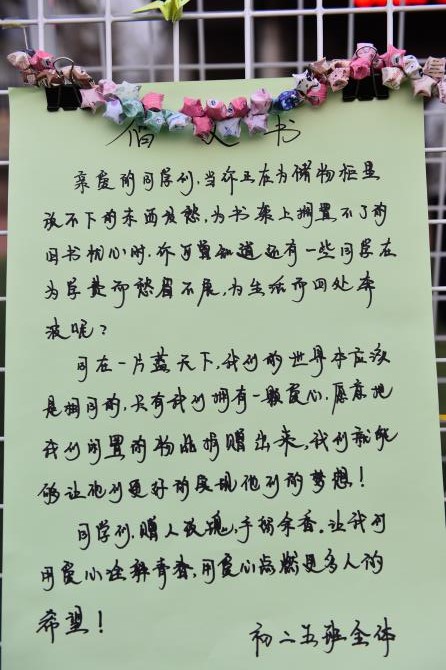 倡议书
亲爱的同学们,当你正在为储物柜里
放不下的东西发愁,为书架上搁置不了的
旧书忧心时,你可曾知道还有一些同学在
为学费而愁眉不展,为生活而四处奔
波呢?
同在一片蓝天下,我们的世界本应该
是相同的,只有我们拥有一颗爱心,愿意把
我们闲置的物品捐赠出来,我们就能
够让他们更好的实现他们的梦想!
同学们,赠人玫瑰,手留余香。让我们
用爱心诠释青春,用爱心点燃更多人的
希望!
初二五班全体